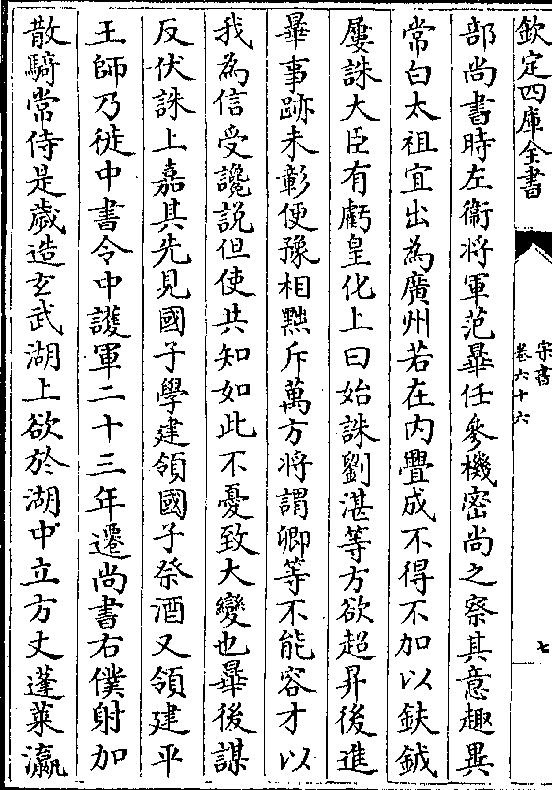 欽定四庫全書
宋書
卷六十六
七
部尚書時左衞將軍范曅任參機密尚之察其意趣異
常白太祖宜出為廣州若在内舋成不得不加以鈇鉞
屢誅大臣有虧皇化上曰始誅劉湛等方欲超昇後進
曅事跡未彰便豫相黜斥萬方將謂卿等不能容才以
我為信受讒説但使共知如此不憂致大變也曅後謀
反伏誅上嘉其先見國子學建領國子祭酒又領建平
王師乃徙中書令中護軍二十三年遷尚書右僕射加
散騎常侍是歲造玄武湖上欲於湖中立方丈蓬萊瀛